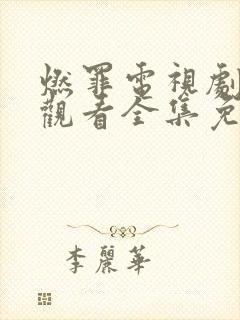 燃罪電視劇
觀看全集免
李麗華